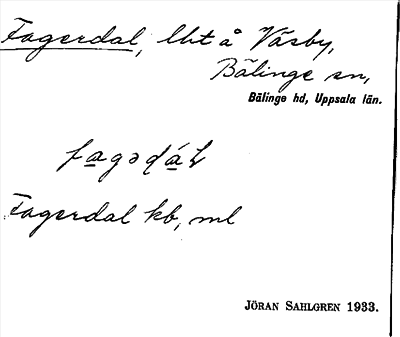 Fagerdal, lht å Väsby,
Bälinge sn,
Bälinge hd, Uppsala län.
fa̱gəɖá̱Ɫ
Fagerdal kb, ml
JÖRAN SAHLGREN 1933.